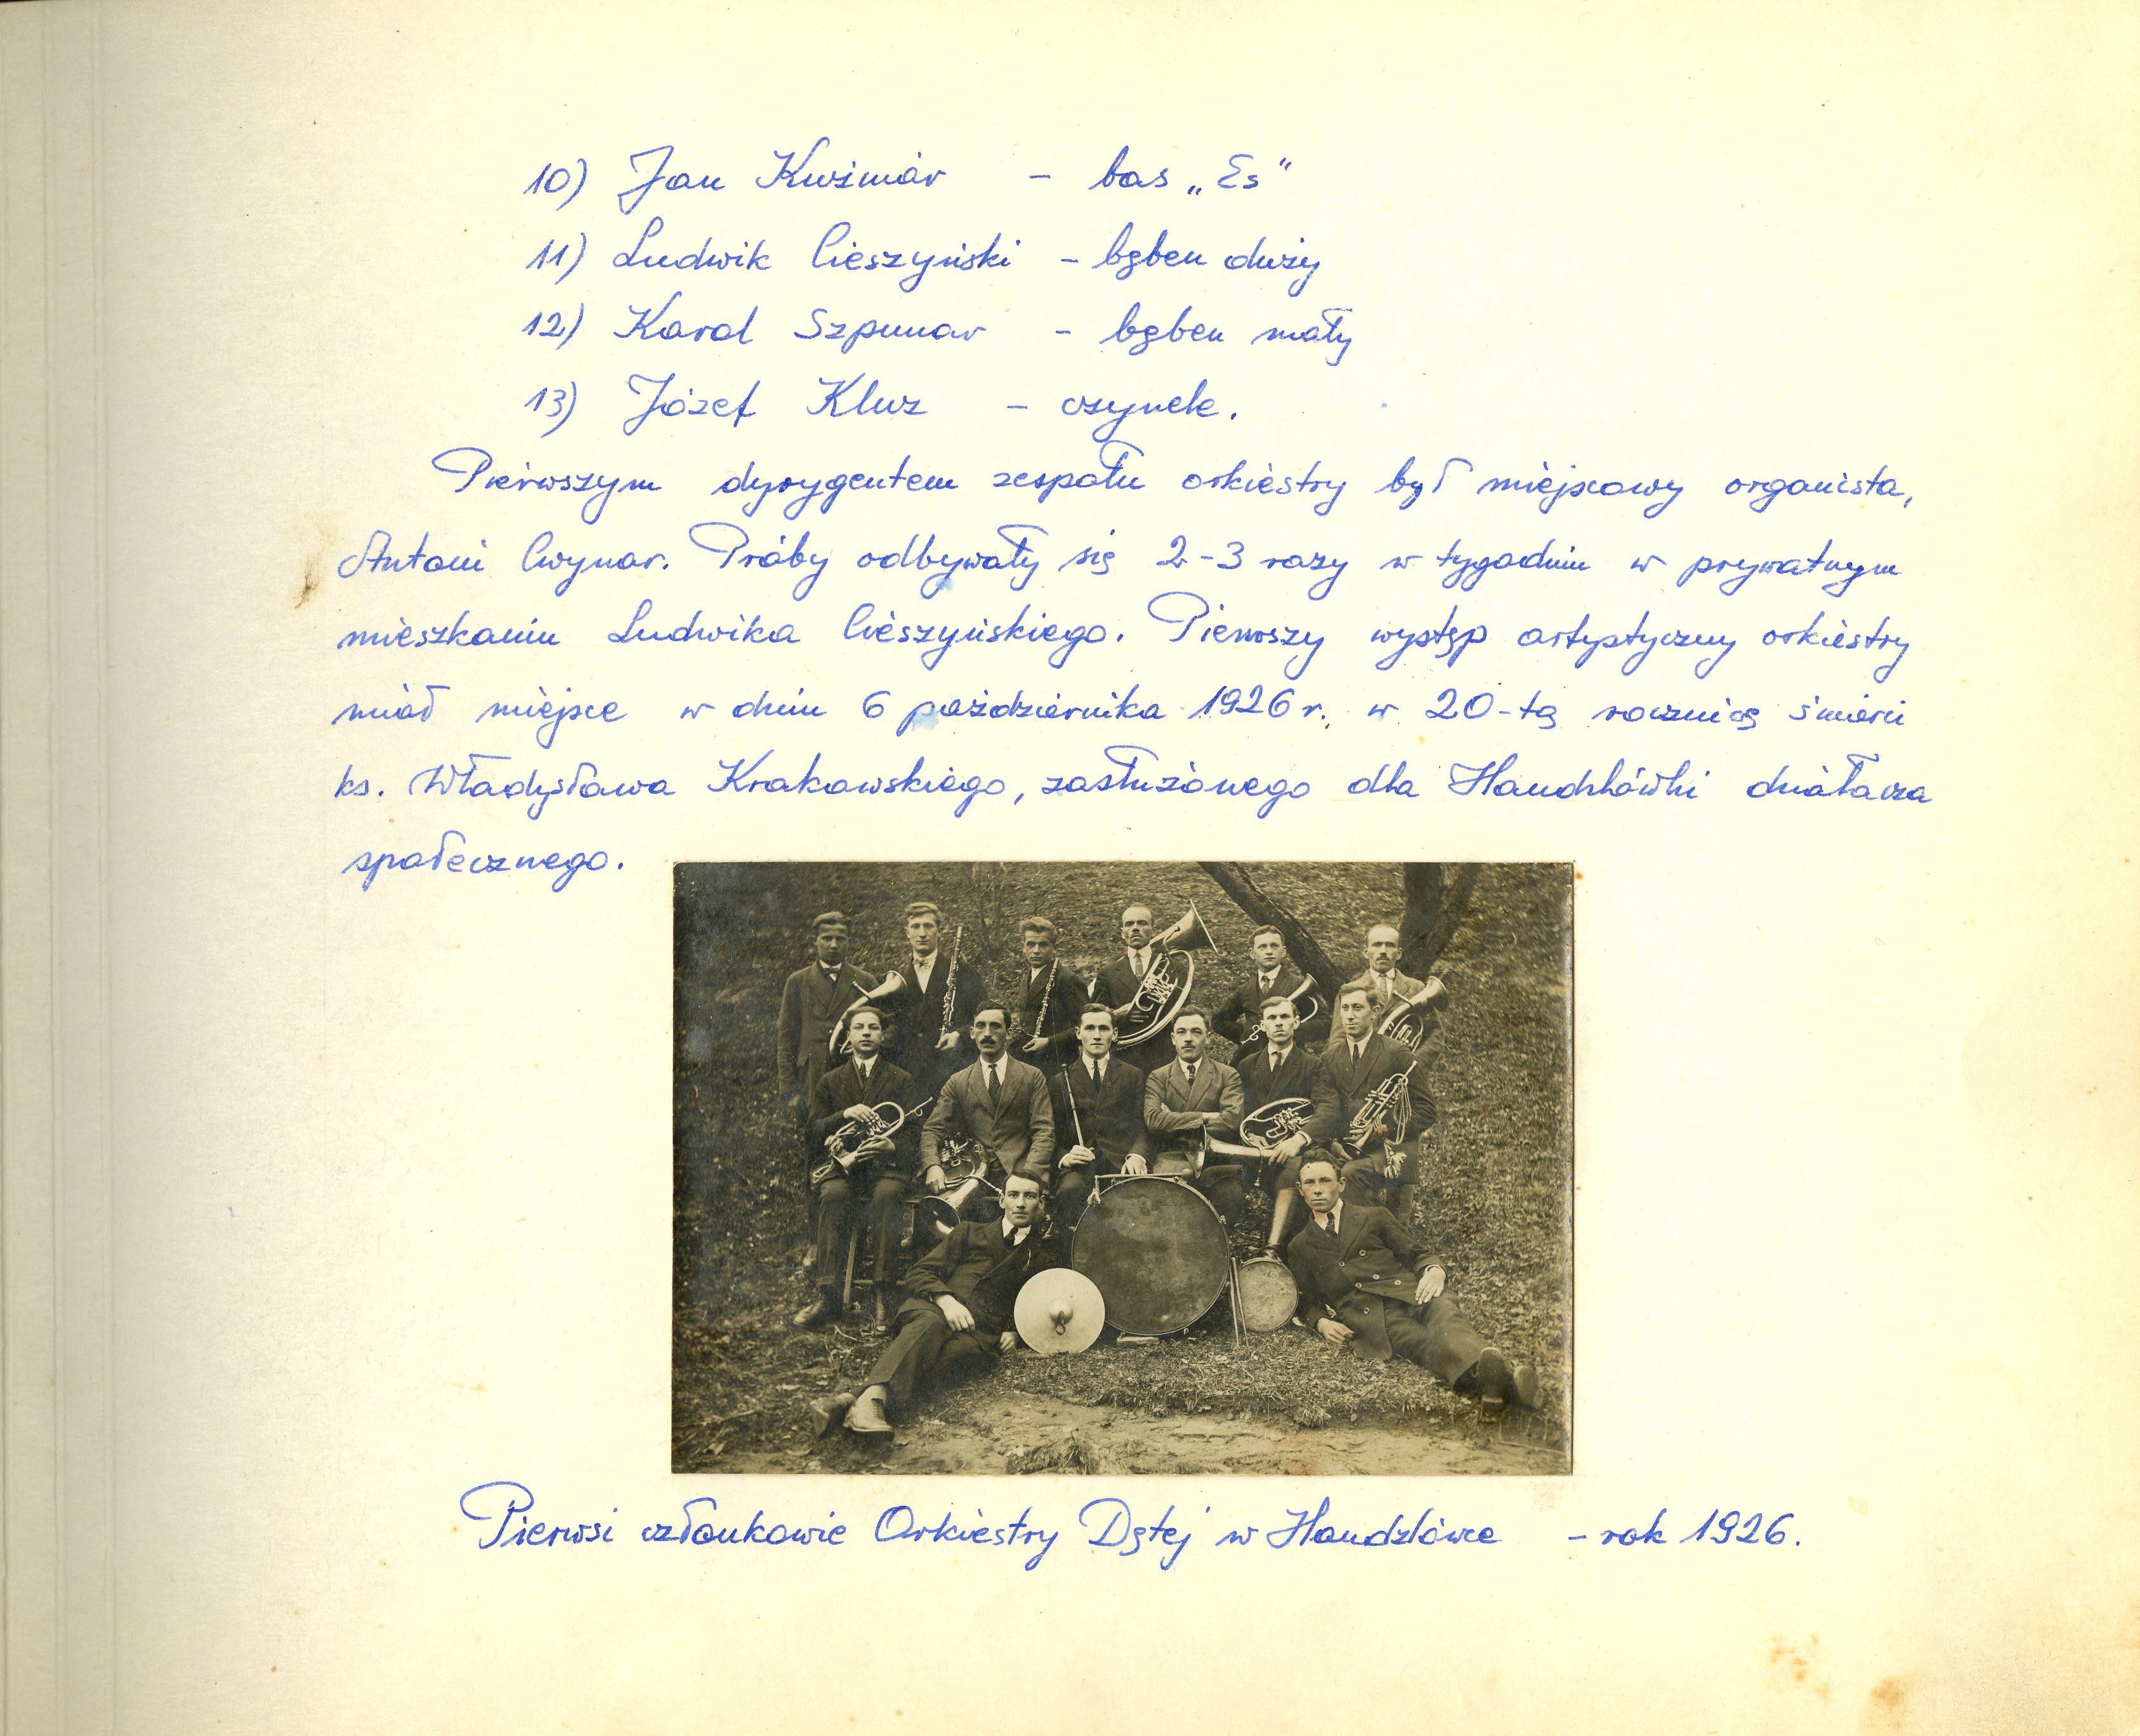 10) Jan Kuźniar - bas „Es"
11) Ludwik Cieszyński - bęben duży
12) Karol Szpunar - bęben mały
13) Józef Kluz - czynele.
Pierwszym dyrygentem zespołu orkiestry był miejscowy organista,
Antoni Cwynar. Próby odbywały się 2-3 razy w tygodniu w prywatnym
mieszkaniu Ludwika Cieszyńskiego. Pierwszy występ artystyczny orkiestry
miał miejsce w dniu 6 października 1926 r. w 20-tą rocznicę śmierci
ks. Władysława Krakowskiego, zasłużonego dla Handzlówki działacza
społecznego.
Pierwsi członkowie Orkiestry Dętej w Handzlówce - rok 1926.